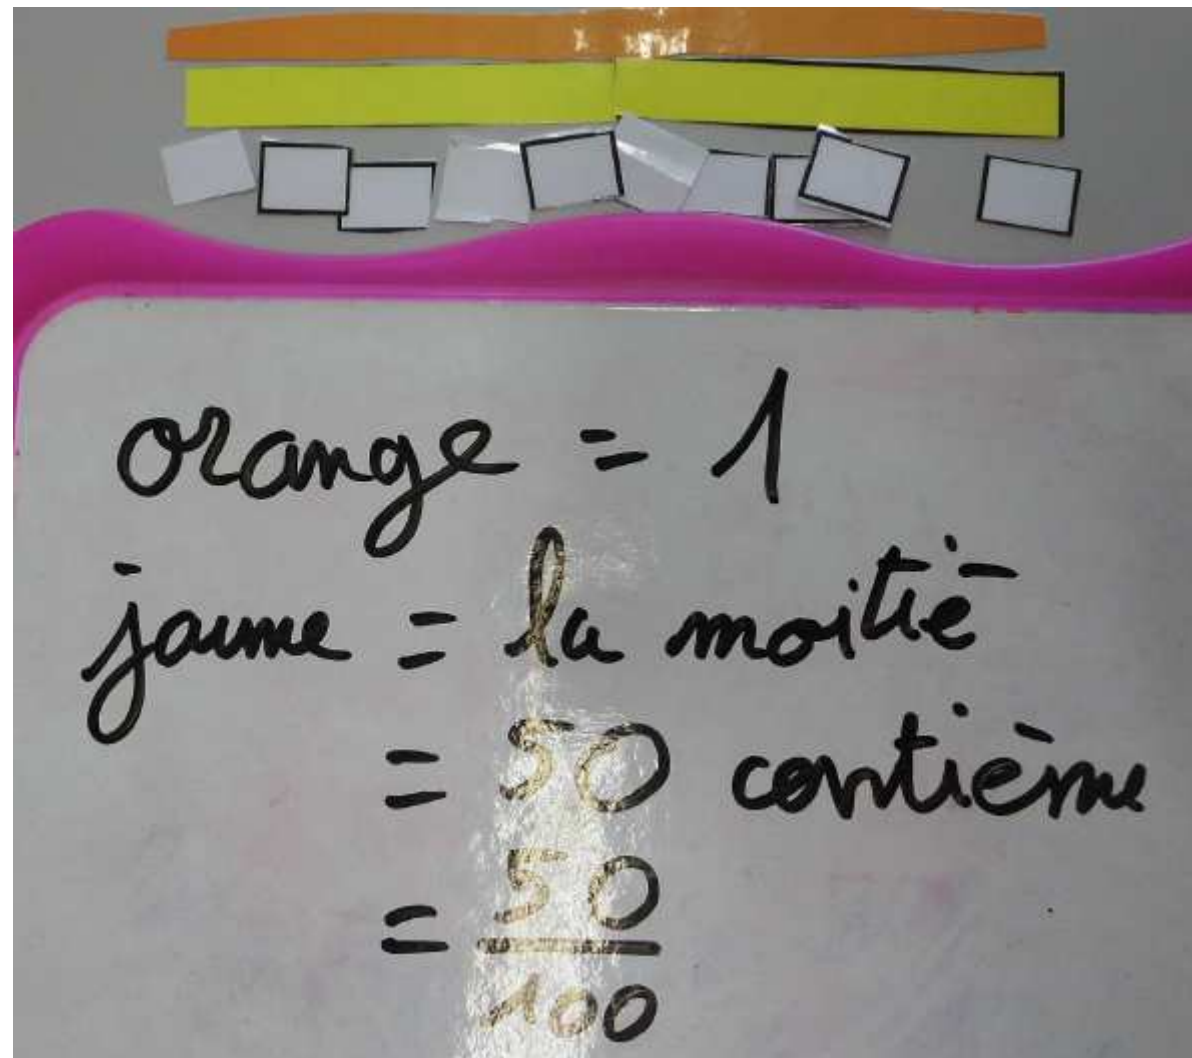 orange = 1
jaune = la moitié
= 50 centième
= 50/100